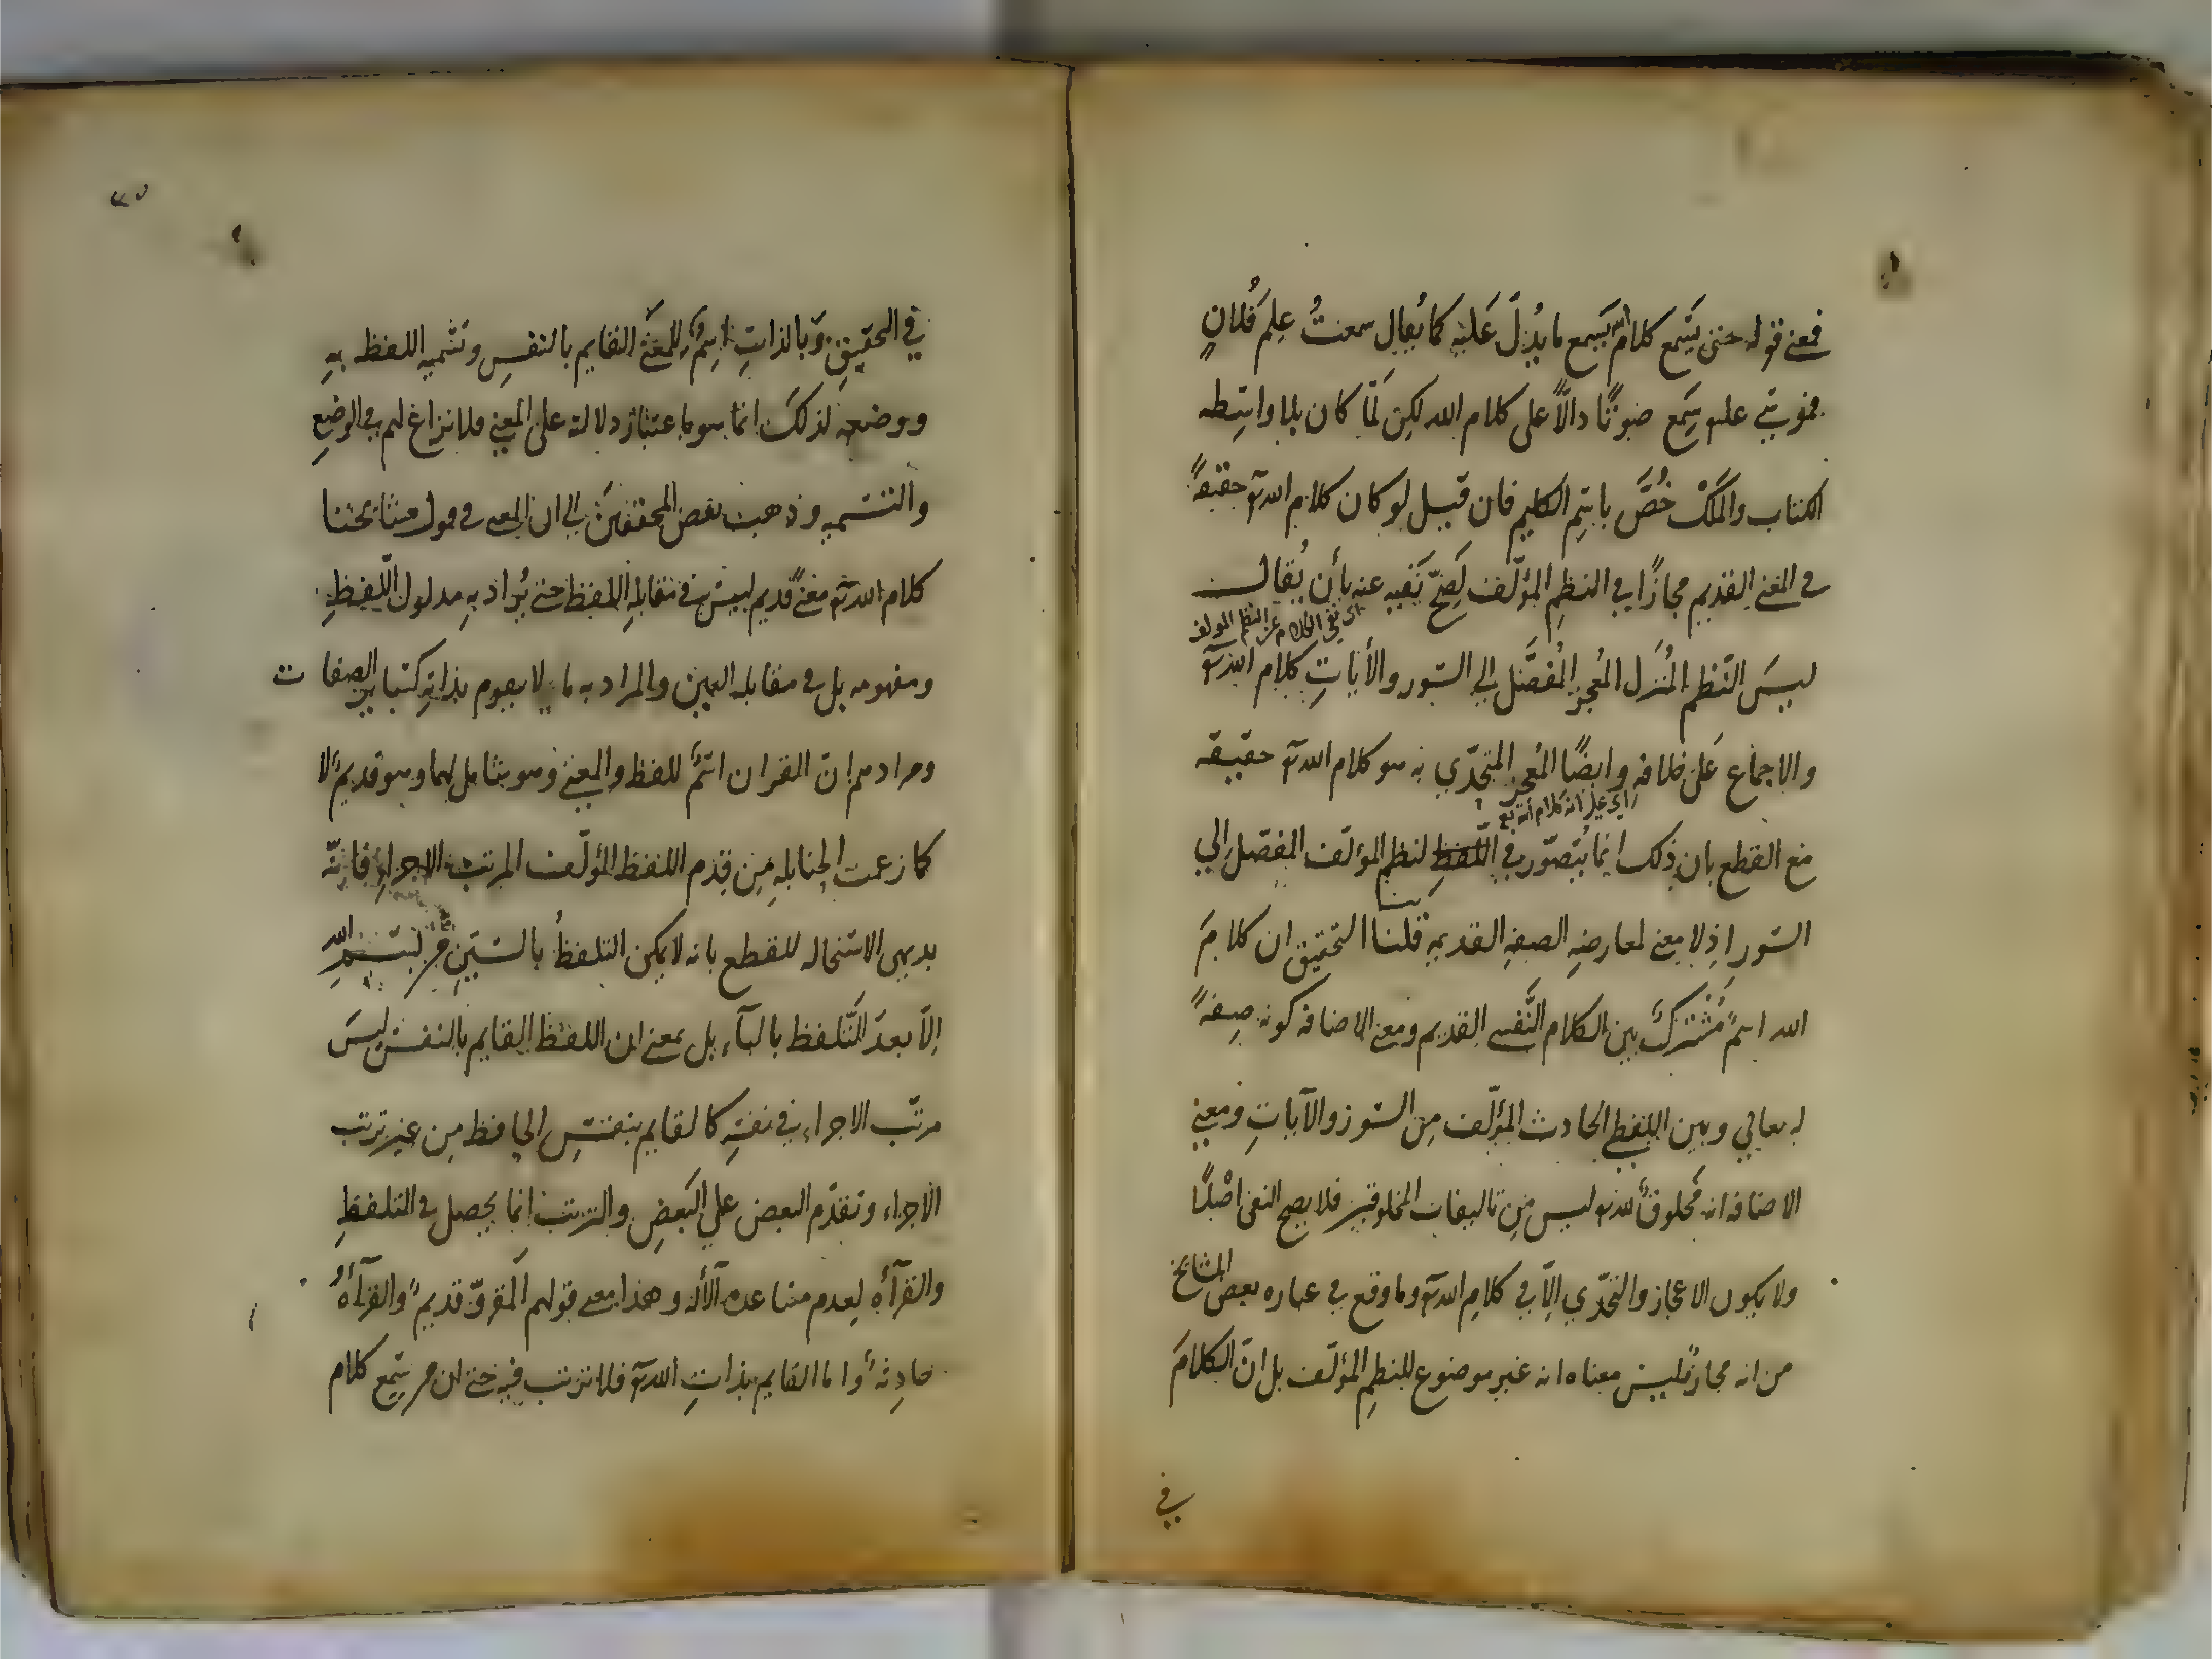 فمعنى قوله حتى يسمع كلام الله يسمع ما يدل عليه كما يقال سمعتُ علمَ فُلانٍ
فموسى علىه سمع صوتًا دالًّا على كلام الله لكن لمّا كان بلا واسطه
الكتاب والملك خُصَّ باسم الكليم فان قيل لو كان كلام الله تع حقيقةً
فى المعنى القديم مجازًا في النظم المؤلّف لصحّ نفيه عنه بأن يُقال
اى نفى الكلام عن النظم المولف
ليسَ النّظم المُنزل المُعجز المُفصَّل الى السّور والأياتِ كلام الله تع
والاجماع عَلى خلافه وايضًا المُعجز المتحدّي به هو كلام الله تع حقيقه
اي على انه كلام الله تع
مع القطع بان ذلك انما يُتصوّر في اللّفظِ لنظم المؤلّف المفصّل الي
السّور اذ لا معنى لمعارضه الصفه القديمه قلنا التحقيق ان كلامَ
الله اسمٌ مُشْتركٌ بين الكلام النّفسى القديم ومعنى الاضافه كونه صِفةً
له تعالي وبين اللفظي الحادث المؤلّف مِن السّور والآياتِ ومعنى
الاضافه انه مخلوقٌ لله تع ليس من تاليفات المخلوقين فلا يصح النفى اصْلًا
ولا يكون الاعجاز والتحدّي الّا في كلام الله تع وما وقع في عباره بعض المشايخ
من انه مجازٌ فليس معناه انه غير موضوع للنظم المؤلّف بل انّ الكلامَ
في
في التحقيق وَبالذاتِ اسمٌ للمعنَى القايم بالنفسِ وتسميه اللفظ بهِ
ووضعه لذلكَ انما هو باعتبار دلالته على المعنى فلا نزاع لهم في الوضعِ
والتسميه وذهب بعض المحققينَ الى ان المعنى فى قول مشايخنا
كلام الله تع معنًى قديم ليسَ فى مقابلهِ اللفظ حتى يُراد بهِ مدلول اللّفظِ
ومفهومه بل فى مقابله العين والمراد به ما لا يقوم بذاتهِ كسايرِ الصفات
ومرادهم انّ القران اسمٌ للفظ والمعنى وهو شامل لهما وهو قديمٌ لا
كما زعمت الحنابلهِ مِن قِدم اللفظ المؤلّف المرتّب الاجزاءِ فانّه
بديهى الاستحاله للقطع بانه لا يمكن التلفظُ بالسّينِ من بسم الله
الّا بعدَ التّلفظ بالباَء بل بمعنى ان اللفظ القايم بالنفس ليسَ
مرتّب الاجزاء فى نفسِهِ كالقايم بنفسِ الحافظ مِن غير ترتب
الاجزاء وتقدّم البعض علي البَعضِ والترتب انما يحصل فى التلفظِ
والقرآءَه لِعدم مساعده الآلَه وهذا معنى قولهم المَقروّ قديمٌ والقرآءَهُ
حادِثهٌ واما القايم بذاتِ الله تع فلا ترتب فيه حتى ان من سمع كلام